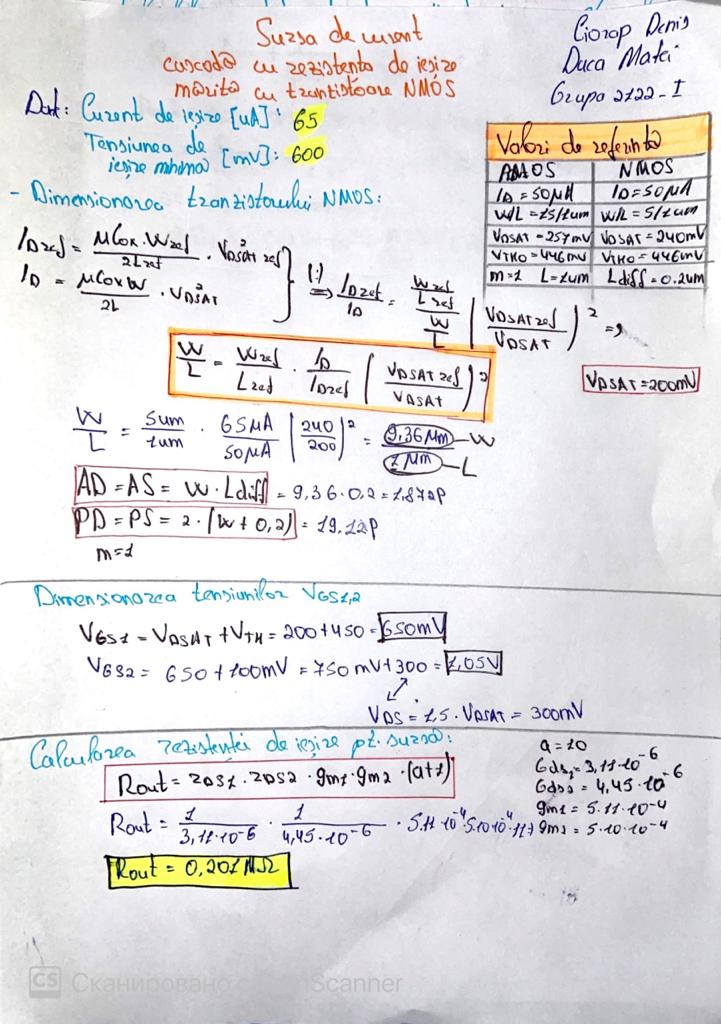 Sursa de curent
cascoda cu rezistenta de iesire
marita cu tranzistoare NMOS
Ciorap Denis
Duca Matei
Grupa 2122-I
Dat: Curent de iesire [uA]: 65
Tensiunea de
iesire minima [mV]: 600
Valori de referinta
PMOS NMOS
ID = 50μA ID = 50μA
W/L = 15/1um W/L = 5/1um
VDSAT = 257mV VDSAT = 240mV
VTHO = 446mV VTHO = 446mV
m=1 L=1um Ldiff = 0.2um
- Dimensionarea tranzistorului NMOS:
IDref = μCox·Wref / 2Lref · VDSAT ref²
ID = μCoxW / 2L · VDSAT²
(:) ⇒ IDref / ID = (Wref / Lref) / (W / L) (VDSAT ref / VDSAT)² =>
W / L = Wref / Lref · ID / IDref (VDSAT ref / VDSAT)²
VDSAT = 200mV
W / L = 5um / 1um · 65μA / 50μA (240 / 200)² = 9,36 μm – W / 1 μm – L
AD = AS = W · Ldiff = 9,36 · 0,2 = 1,872p
PD = PS = 2 · (W + 0,2) = 19.12p
m=1
Dimensionarea tensiunilor VGS1,2
VGS1 = VDSAT + VTH = 200 + 450 = 650mV
VGS2 = 650 + 100mV = 750 mV + 300 = 1,05V
VDS = 1,5 · VDSAT = 300mV
Calcularea rezistentei de iesire pt. sursa:
Rout = rDS1 · rDS2 · gm1 · gm2 · (a+1)
a = 10
Gds1 = 3,11·10⁻⁶
Gds2 = 4,45·10⁻⁶
gm1 = 5.11·10⁻⁴
gm2 = 5·10·10⁻⁴
Rout = 1 / 3,11·10⁻⁶ · 1 / 4,45·10⁻⁶ · 5.11·10⁻⁴ 5·10·10⁻⁴ ·11
Rout = 0,201 MΩ
CS Сканировано с CamScanner